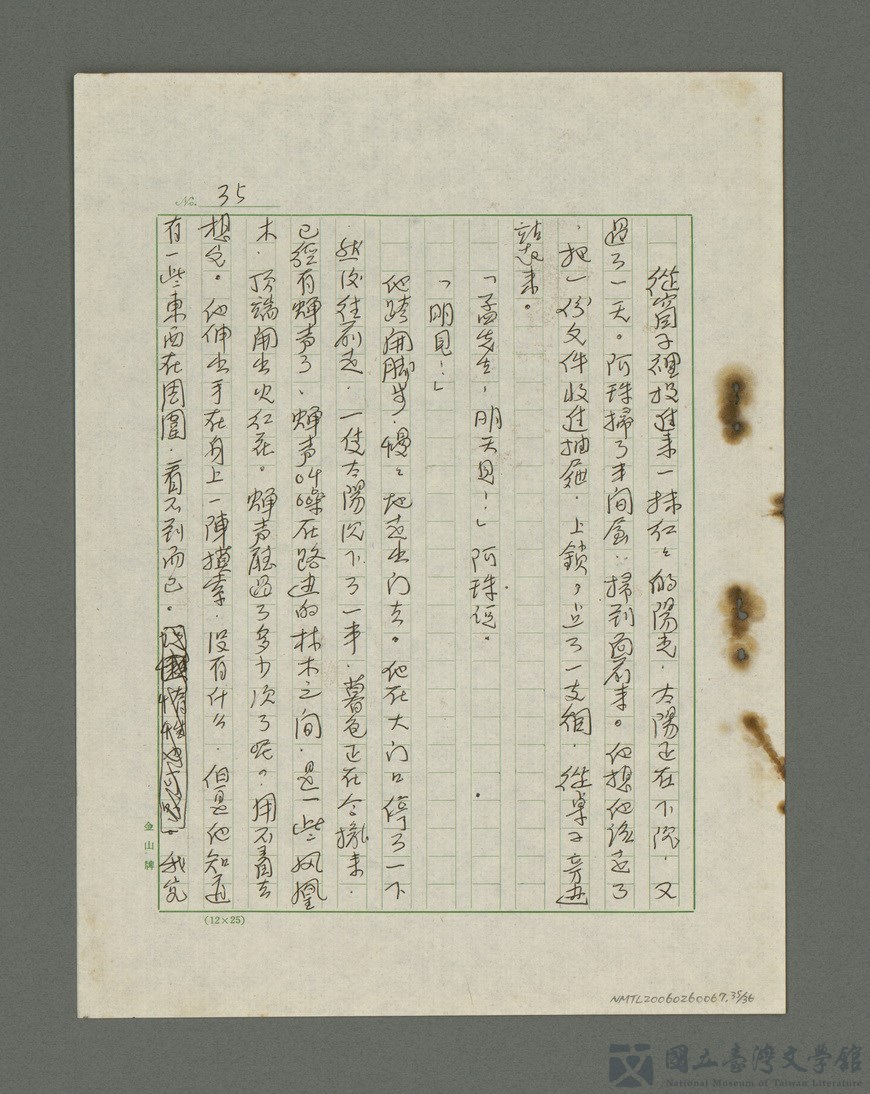 No. 35
從窗子裡投進来一抹紅々的陽光，太陽正在下沉，又
過了一天。阿珠掃了半间屋，掃到面前来。他想他該走了
，把一份文件收進抽屜，上鎖，点了一支烟，從桌子旁边
站起来。
「孟先生，明天見！」阿珠说。
「明見！」
他跨開脚步，慢々地走出门去。他在大门口停了一下
，然後往前走，一隻太陽沉下了一半，暮色正在合攏来，
已經有蟬声了，蟬声叫噪在路边的林木之间，是一些鳳凰
木，頂端開出火红花。蟬声聽過了多少次了呢？用不着去
想它。他伸出手在身上一陣摸索，没有什么，但是他知道
有一些東西在周圍，看不到而已。我究
金山牌
(12×25)
NMTL20060260067.35/36
國立臺灣文學館
National Museum of Taiwan Literature